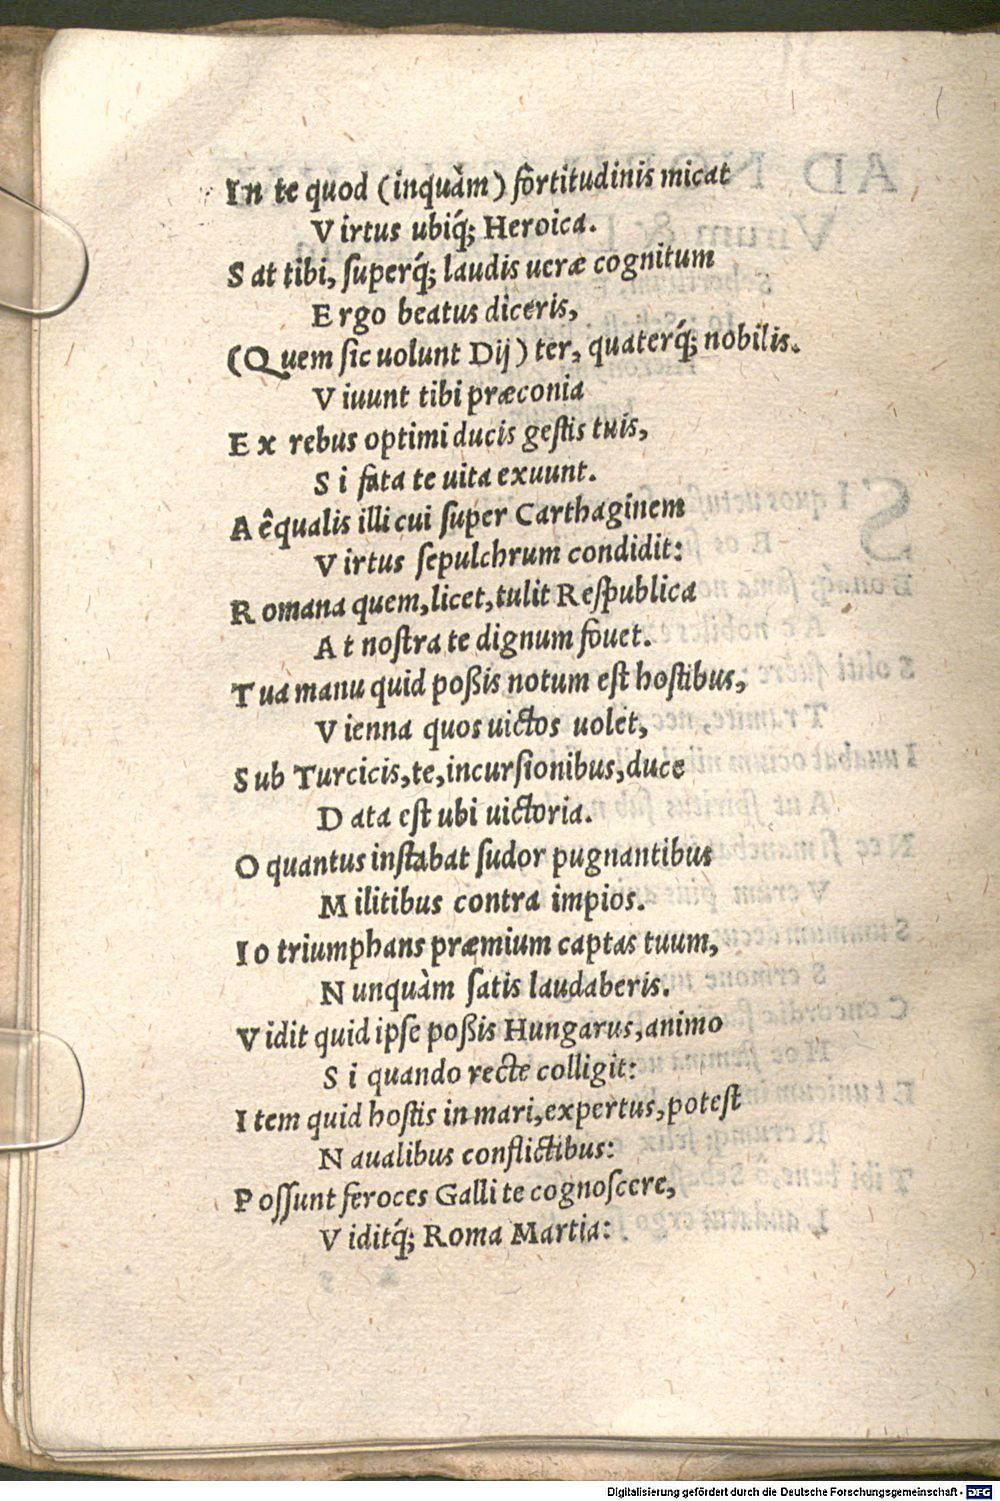 In te quod (inquàm) fortitudinis micat
Virtus ubiq́; Heroica.
Sat tibi, ſuperq́; laudis ueræ cognitum
Ergo beatus diceris,
(Quem ſic uolunt Dij) ter, quaterq́; nobilis.
Viuunt tibi præconia
Ex rebus optimi ducis geſtis tuis,
Si fata te uita exuunt.
Aêqualis illi cui ſuper Carthaginem
Virtus ſepulchrum condidit:
Romana quem, licet, tulit Reſpublica
At noſtra te dignum fouet.
Tua manu quid poßis notum eſt hoſtibus,
Vienna quos uictos uolet,
Sub Turcicis, te, incurſionibus, duce
Data eſt ubi uictoria.
O quantus inſtabat ſudor pugnantibus
Militibus contra impios.
Io triumphans præmium captas tuum,
Nunquàm ſatis laudaberis.
Vidit quid ipſe poßis Hungarus, animo
Si quando recte colligit:
Item quid hoſtis in mari, expertus, poteſt
Naualibus conflictibus:
Poſſunt feroces Galli te cognoſcere,
Viditq́; Roma Martia:
Digitalisierung gefördert durch die Deutsche Forschungsgemeinschaft - DFG